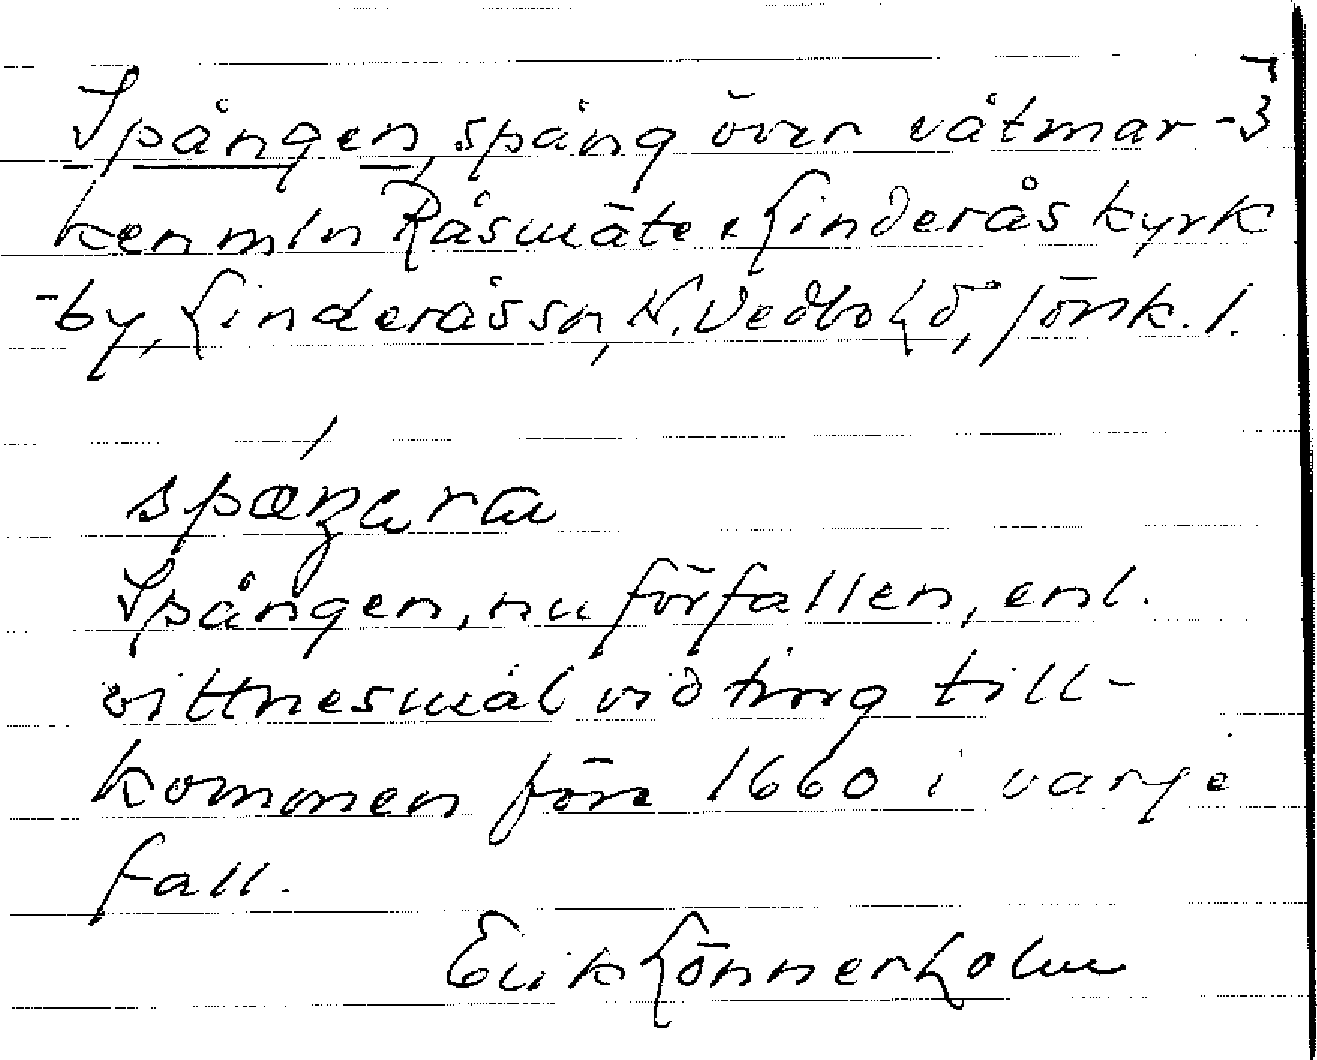 Spången, spång över våtmar-
ken mln Råsmåte o Linderås kyrk
-by, Linderås sn, N. Vedbo hd, Jönk. l.
Spången, nu förfallen, enl.
vittnesmål vid ting till-
kommen före 1660 i varje
fall.
Erik Lönnerholm